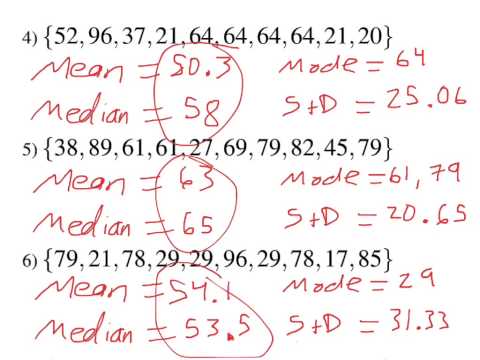 4) {52, 96, 37, 21, 64, 64, 64, 64, 21, 20}
Mean = 50.3 Mode = 64
Median = 58 S+D = 25.06
5) {38, 89, 61, 61, 27, 69, 79, 82, 45, 79}
Mean = 63 Mode = 61, 79
Median = 65 S+D = 20.65
6) {79, 21, 78, 29, 29, 96, 29, 78, 17, 85}
Mean = 54.1 Mode = 29
Median = 53.5 S+D = 31.33